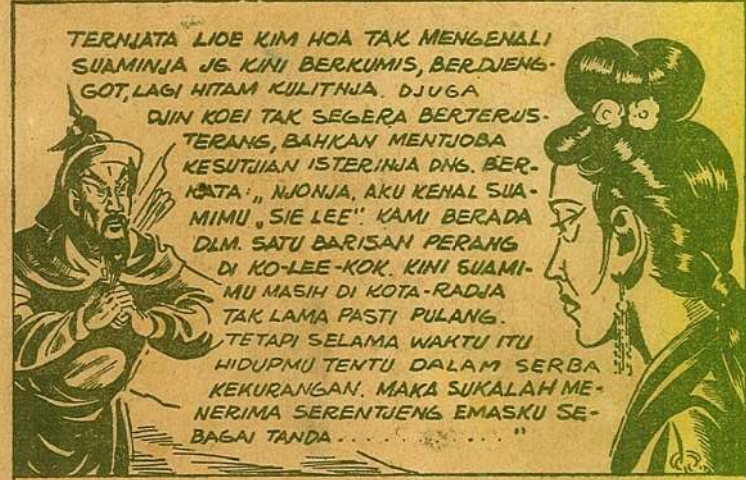 TERNJATA LIOE KIM HOA TAK MENGENALI
SUAMINJA JG. KINI BERKUMIS, BERDJENG-
GOT, LAGI HITAM KULITNJA. DJUGA
DJIN KOEI TAK SEGERA BERTERUS-
TERANG, BAHKAN MENTJOBA
KESUTJIAN ISTERINJA DNG. BER-
KATA: „NJONJA, AKU KENAL SUA-
MIMU „SIE LEE". KAMI BERADA
DLM. SATU BARISAN PERANG
DI KO-LEE-KOK. KINI SUAMI-
MU MASIH DI KOTA-RADJA
TAK LAMA PASTI PULANG.
TETAPI SELAMA WAKTU ITU
HIDUPMU TENTU DALAM SERBA
KEKURANGAN. MAKA SUKALAH ME-
NERIMA SERENTJENG EMASKU SE-
BAGAI TANDA . . . . . . . . . . . "